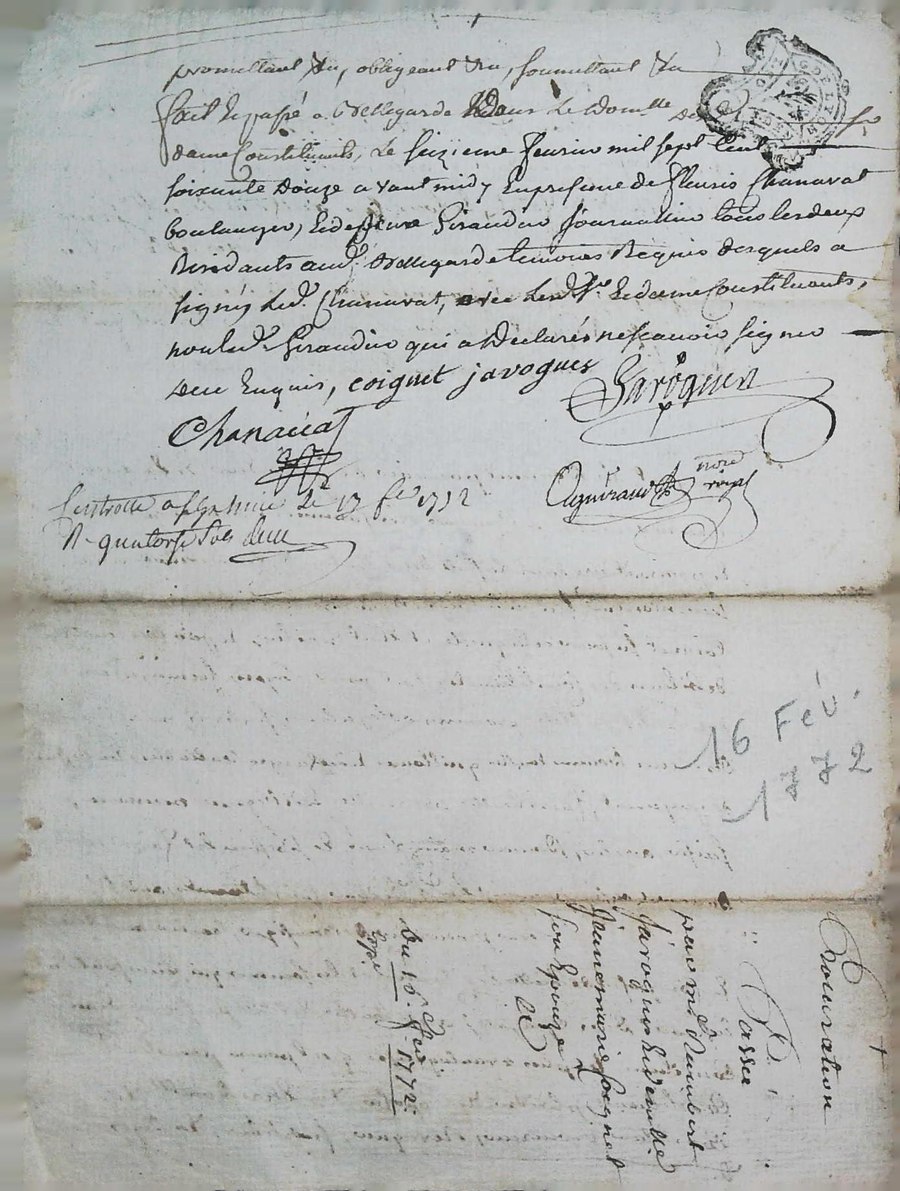 promettant &a, obligeant &a, soumettant &a
fait et passé a Bellegarde Dans Le Domille des S.r
dame Constituants, Le seizieme feurier mil sept Cent
soixante douze avant midy En presence de fleuris Chanavat
boulanger, Et de pierre Giraudier journalier tous les deux
Residants aud. Bellegarde temoins Requis desquels a
signés Led. Chanavat, avec Lesd. S.r Et dame Constituants,
non led. Giraudier qui a Declarés ne scavoir signer
De ce Enquis, coignet javogues
Javoguen
Chanavat
nore
royal
Controllé a St Galmier Le 17 fe 1772
R quatorse sols
16 Fév.
1772
Procuration
Passée
par m.e Rambert
Javogues Et demlle
Jeanne marie Coignet
son Epouze
Du 16.e feu. 1772
Expé